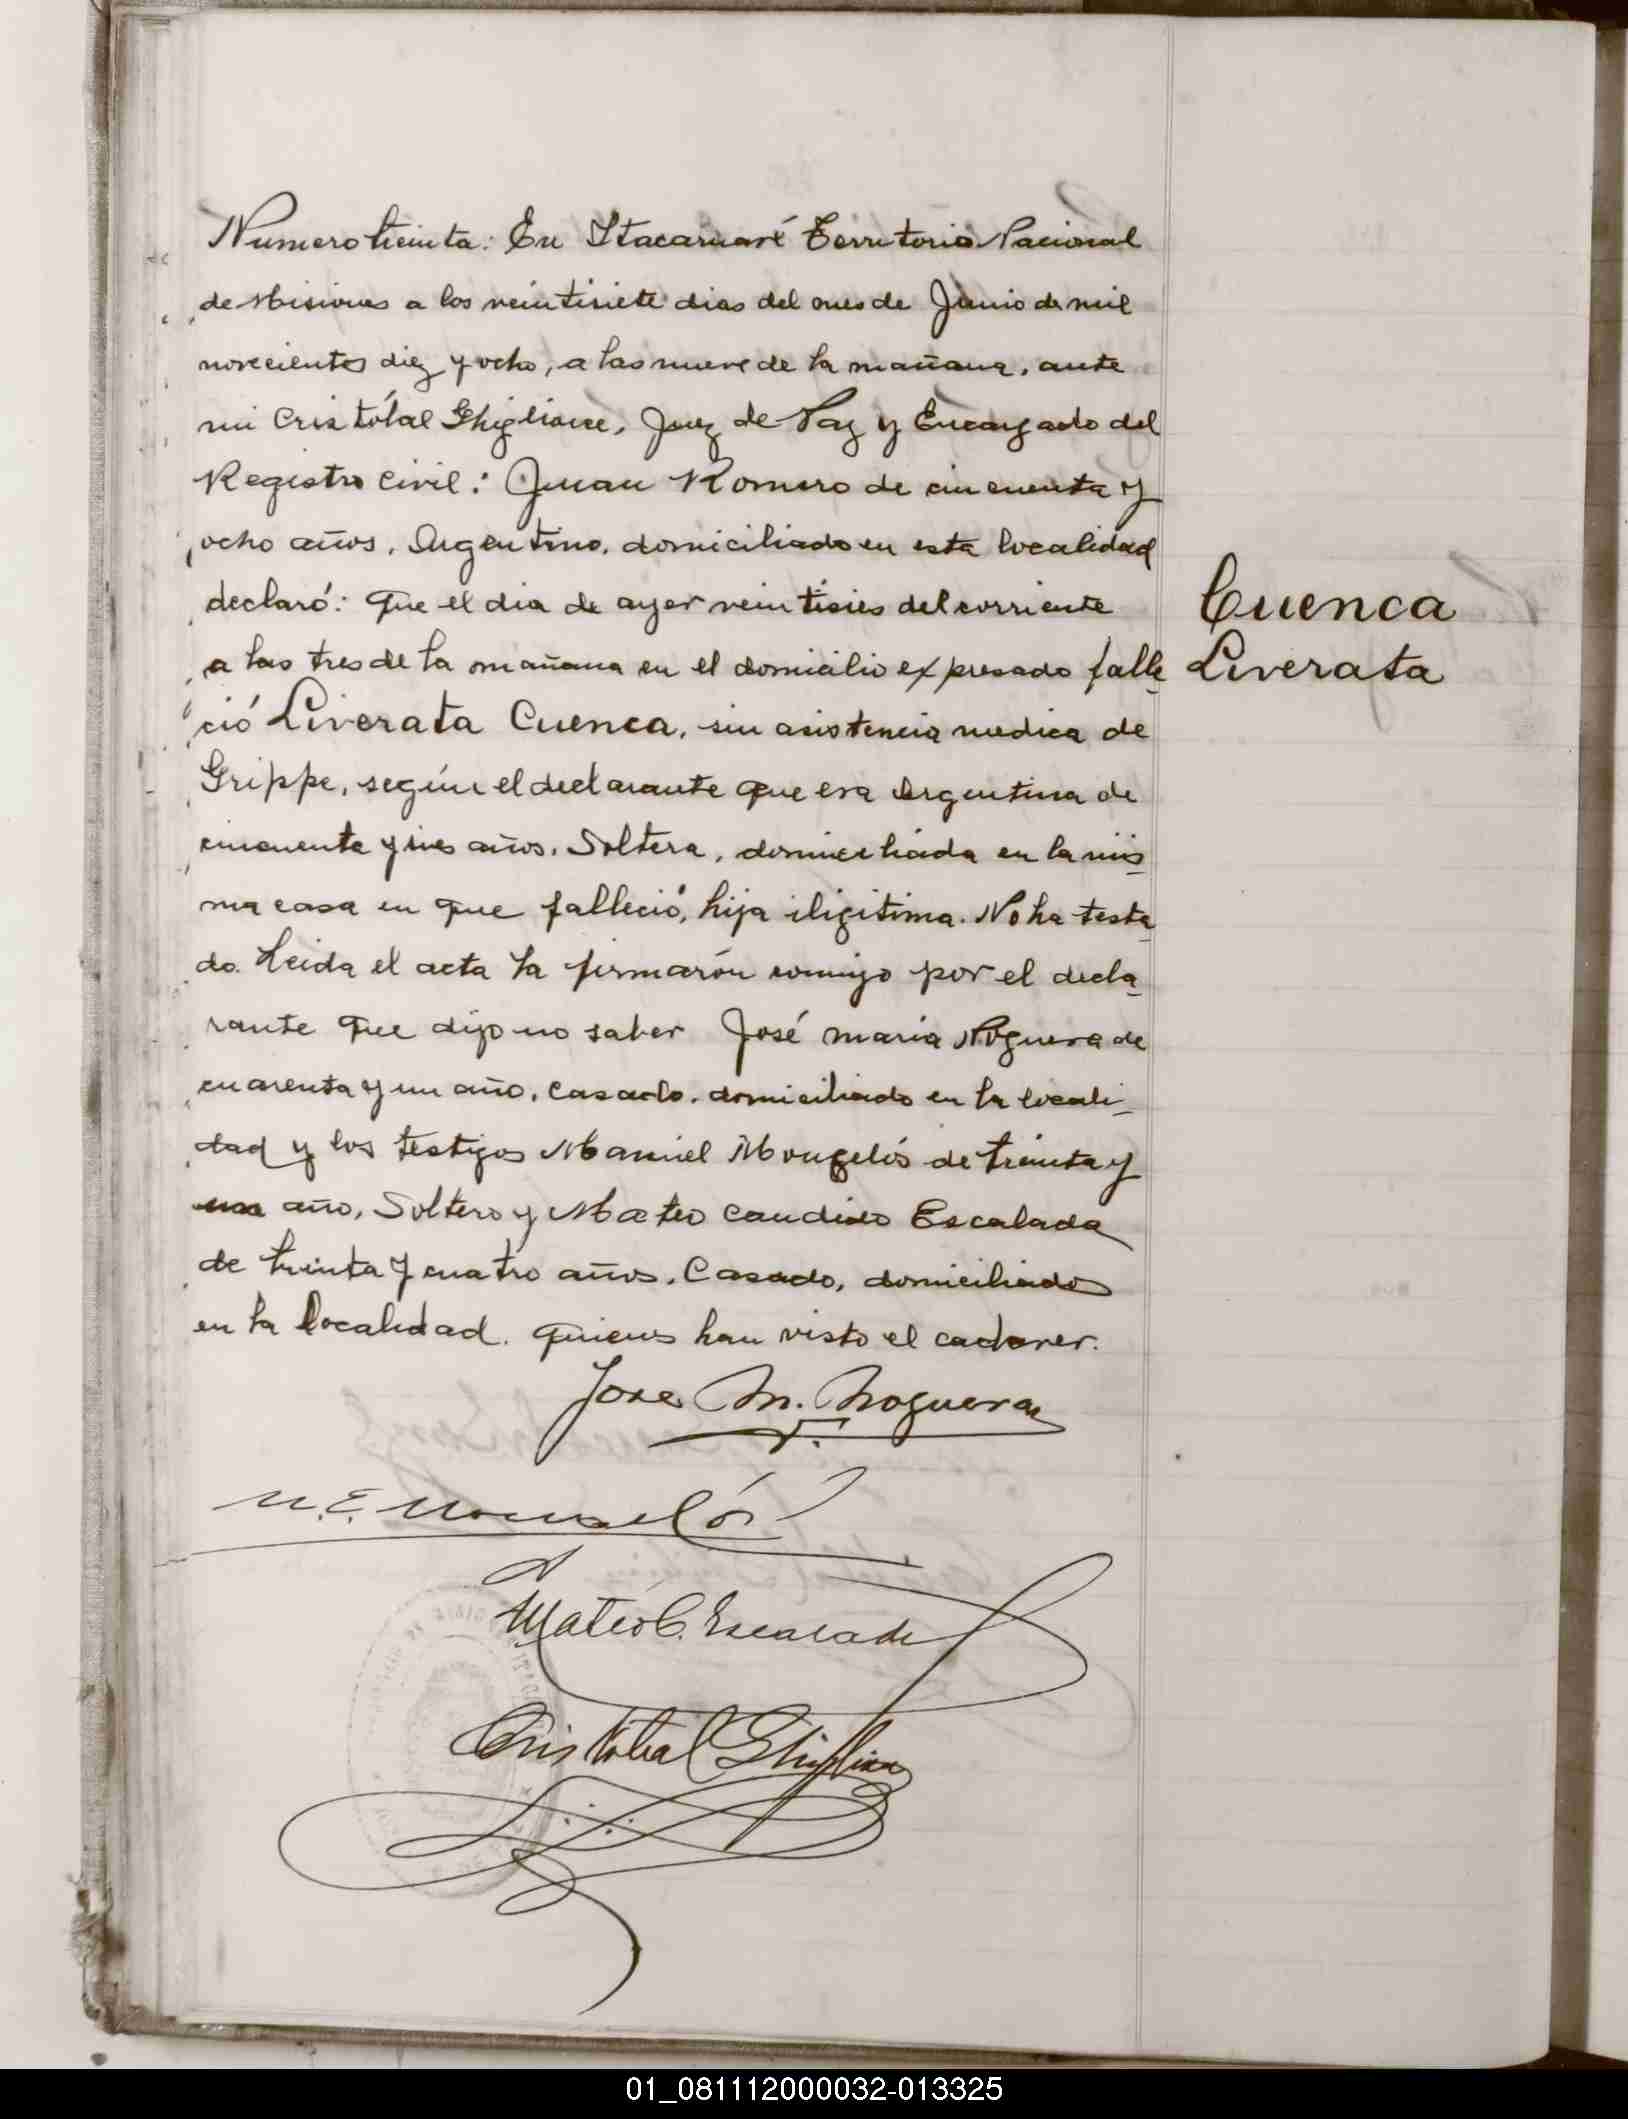 Numero treinta: En Itacaruaré Territorio Nacional
de Misiones a los veintisiete dias del mes de Junio de mil
novecientos diez y ocho, a las nueve de la mañana, ante
mi Cristóbal Ghiglione, Juez de Paz y Encargado del
Registro Civil: Juan Romero de cincuenta y
ocho años, Argentino, domiciliado en esta localidad
declaró: Que el dia de ayer veintiseis del corriente
a las tres de la mañana en el domicilio expresado falle
Cuenca
Liverata
ció Liverata Cuenca, sin asistencia medica de
Grippe, según el declarante que era Argentina de
cincuenta y años, Soltera, domiciliada en la mis
ma casa en que falleció, hija iligitima. No ha testa
do. Leida el acta la firmarón conmigo por el decla
rante que dijo no saber José Maria Noguera de
cuarenta y un año, casado, domiciliado en la locali
dad y los testigos Manuel Mongelós de treinta y
un año, Soltero y Mateo Candido Escalada
de treinta y cuatro años, Casado, domiciliados
en la localidad. quienes han visto el cadaver.
Jose M. Noguera
M. E. Mongelós
Mateo C. Escalada
Cristobal Ghiglione
01_081112000032-013325